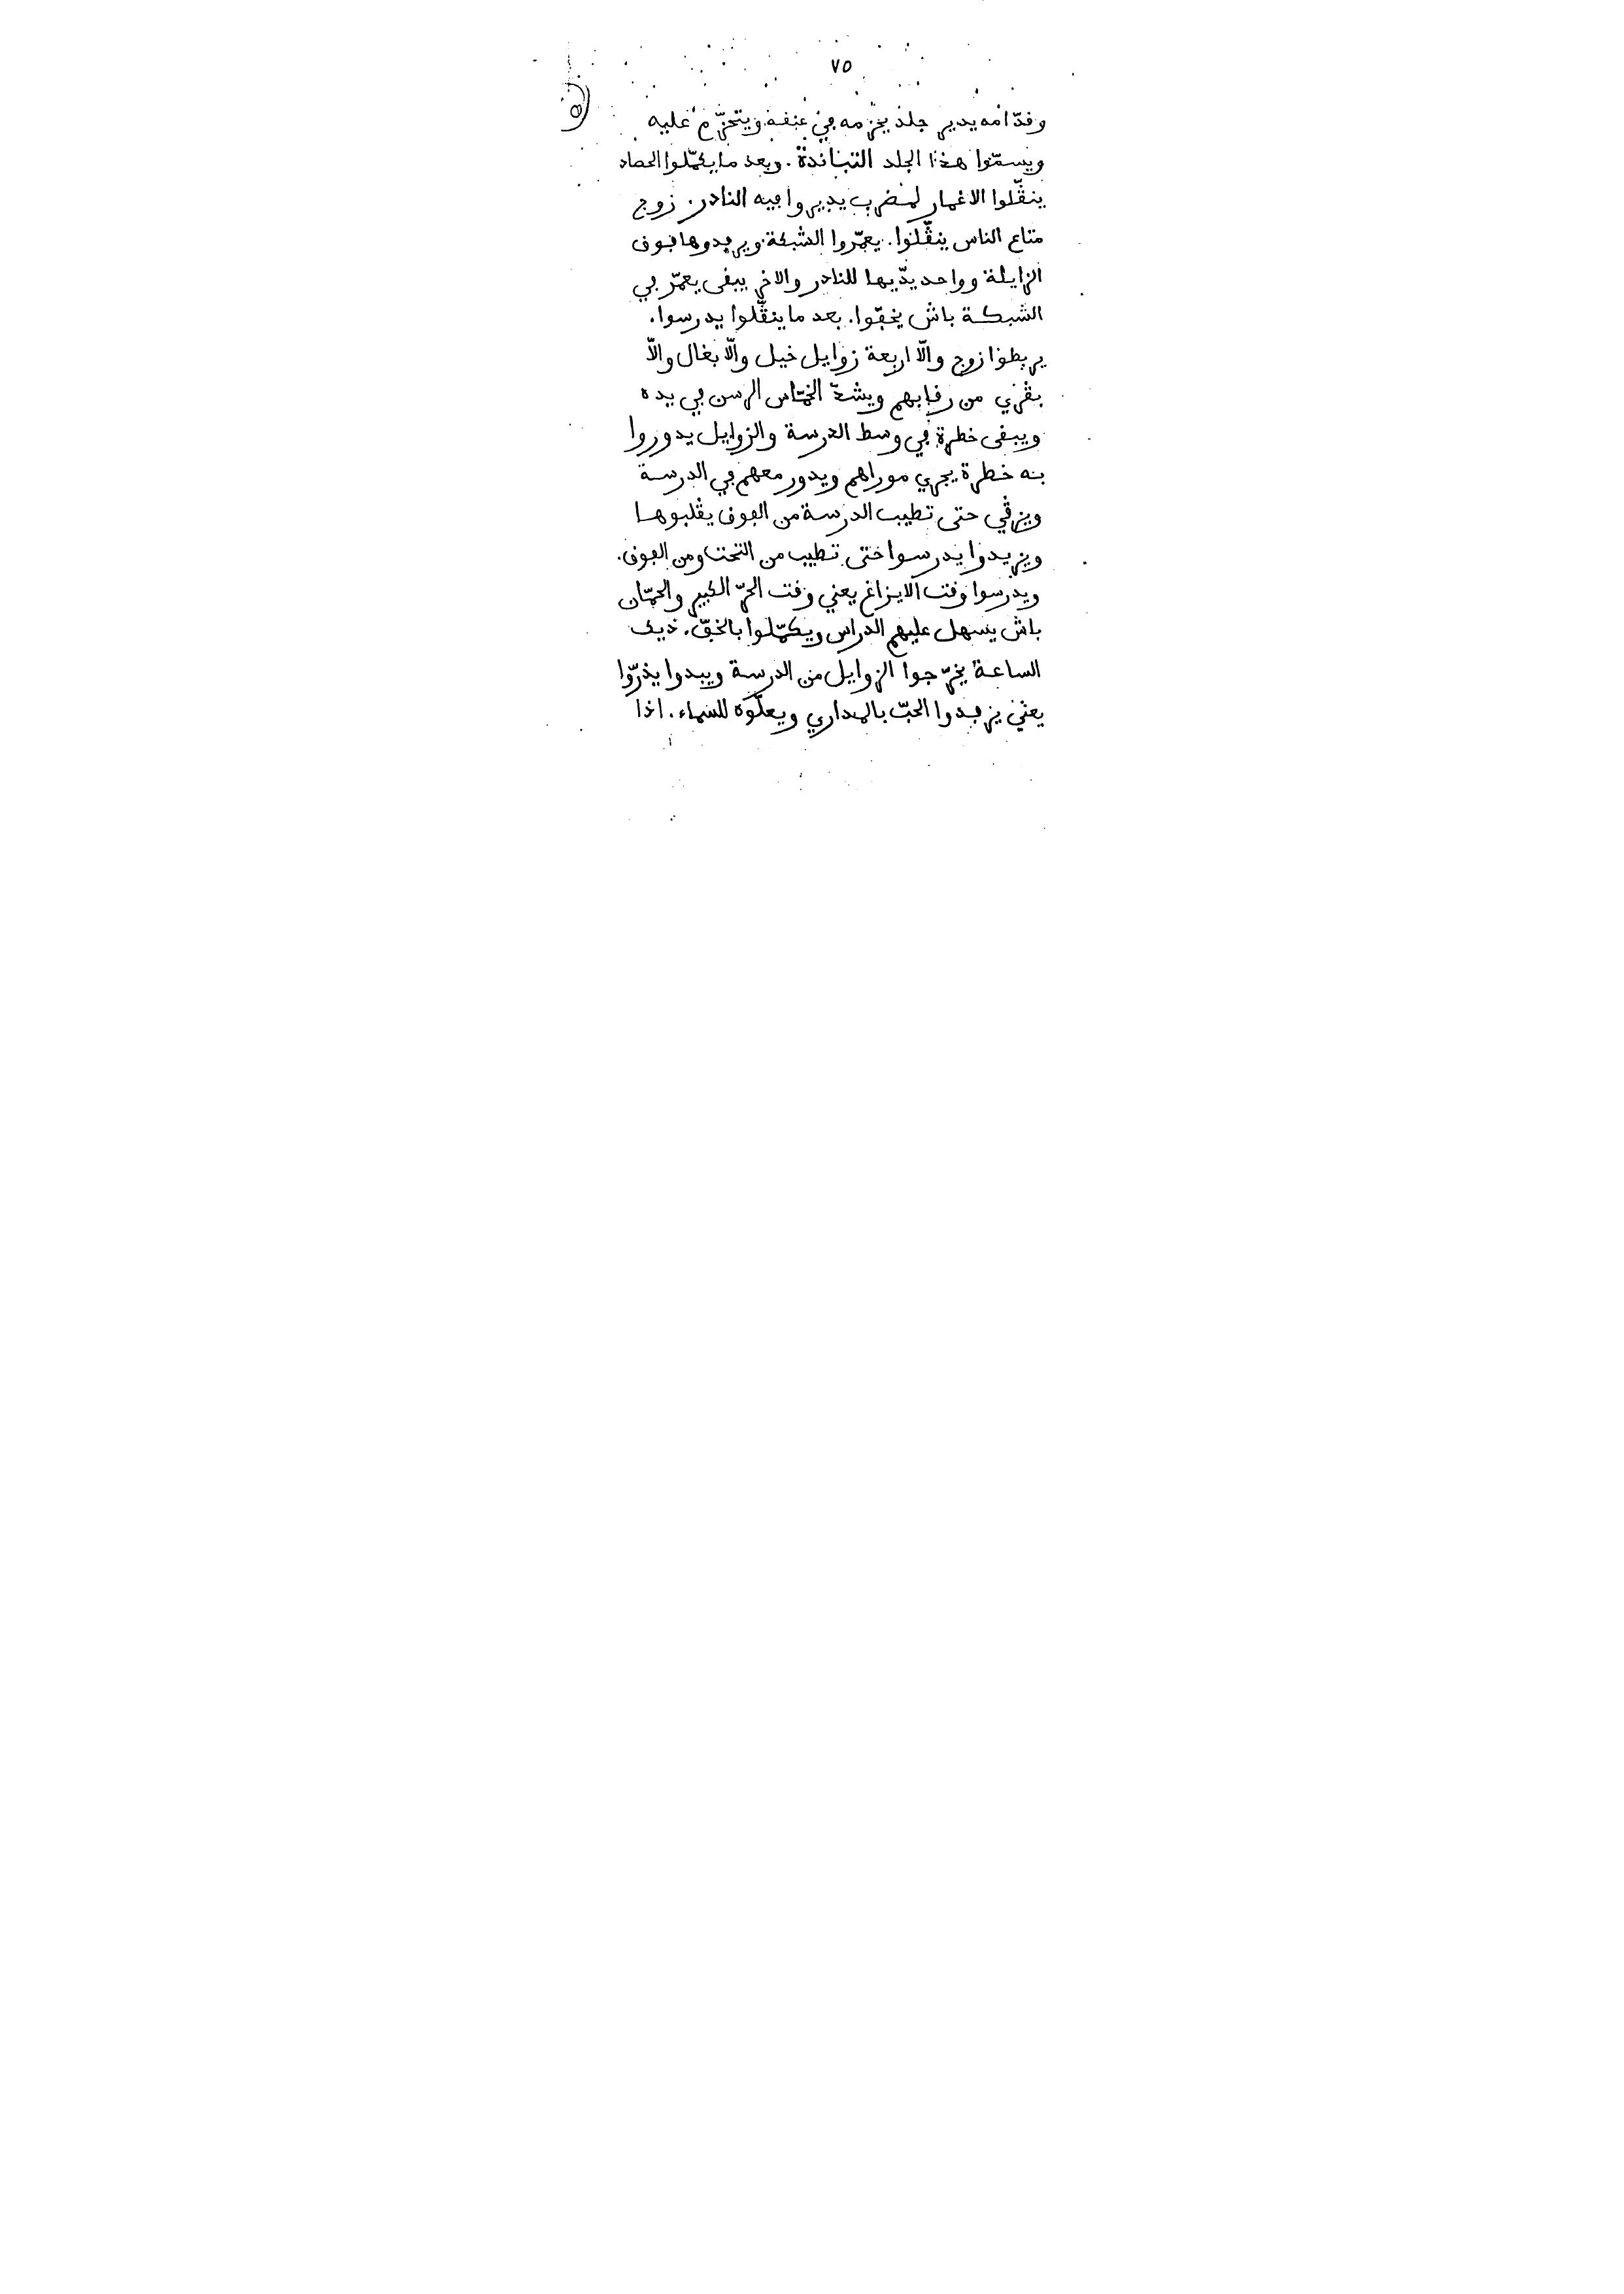 ٧٥
وقدّامه يدير جلد يحزمه في عنقه ويتحزّم عليه
ويسمّوا هذا الجلد التباندة. وبعد ما يكمّلوا الحصاد
ينڨّلوا الاغمار لمضرب يديروا فيه النادر. زوج
متاع الناس ينڨّلوا. يعمّروا الشبكة ويرفدوها فوق
الزايلة وواحد يدّيها للنادر والاخر يبقى يعمّر في
الشبكة باش يخفّوا. بعد ما ينڨّلوا يدرسوا.
يربطوا زوج والّا اربعة زوايل خيل والّا بغال والّا
بڨري من رقابهم ويشدّ الخمّاس الرسن في يده
ويبقى خطرة في وسط الدرسة والزوايل يدوروا
به خطرة يجري موراهم ويدور معهم في الدرسة
ويزڨي حتى تطيب الدرسة من الفوق يڨلبوها
ويزيدوا يدرسوا حتى تطيب من التحت ومن الفوق.
ويدرسوا وقت الايزاغر يعني وقت الحرّ الكبير والحمّان
باش يسهل عليهم الدراس ويكمّلوا بالخفّ. ذيك
الساعة يخرّجوا الزوايل من الدرسة ويبدوا يذرّوا
يعني يرفدوا الحبّ بالمداري ويعلّوه للسماء. اذا